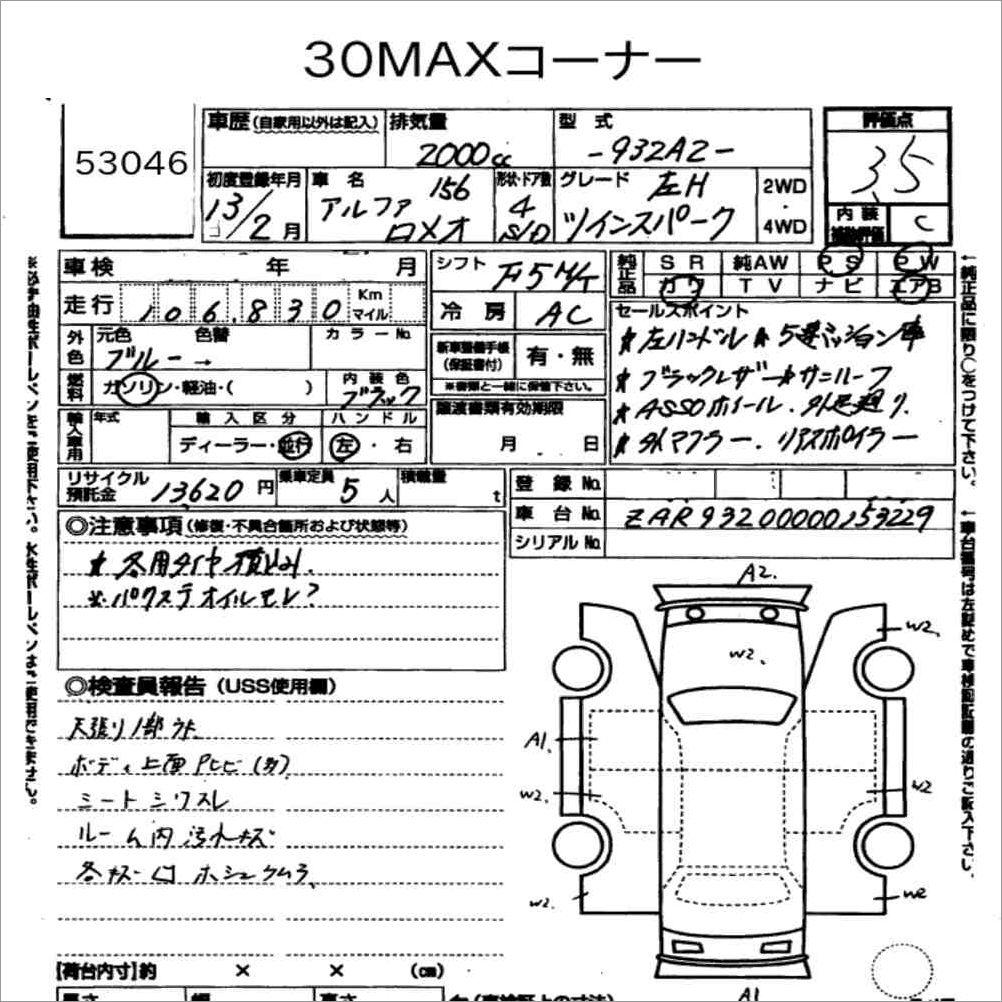 30MAXコーナー
53046
車歴(自家用以外は記入) 排気量 2000cc 型式 -932A2- 評価点 3.5
初度登録年月 13/2月 車名 アルファロメオ 156 形状・ドア数 4 S/D グレード 左H ツインスパーク 2WD・4WD 内装補助評価 C
車検 年 月 シフト F5MT 純正品 SR 純AW PS PW
カワ TV ナビ エアB
走行 106,830 Km マイル 冷房 AC
セールスポイント
外色 元色 ブルー → 色替 カラーNo. 新車整備手帳(保証書付) 有・無
★左ハンドル ★5速ミッション車
燃料 ガソリン・軽油・( ) 内装色 ブラック ※書類と一緒に保管下さい。
★ブラックレザー ★サンルーフ
輸入車用 年式 輸入区分 ディーラー・並行 ハンドル 左・右 譲渡書類有効期限 月 日
★ASSOホイール.外足廻り.
★外マフラー.リアスポイラー
リサイクル預託金 13620円 乗車定員 5人 積載量 t 登録No.
車台No. ZAR93200000153229
シリアルNo.
◎注意事項(修復・不具合箇所および状態等)
★冬用タイヤ積込み.
※パワステオイルモレ?
◎検査員報告(USS使用欄)
天張り1部
ボディ上面
シートシワスレ
ルーム内汚れキズ
A2.
W2.
W2.
A1.
W2.
W2
W2.
W2
A1
【荷台内寸】約 × × (cm)
長さ 幅 高さ